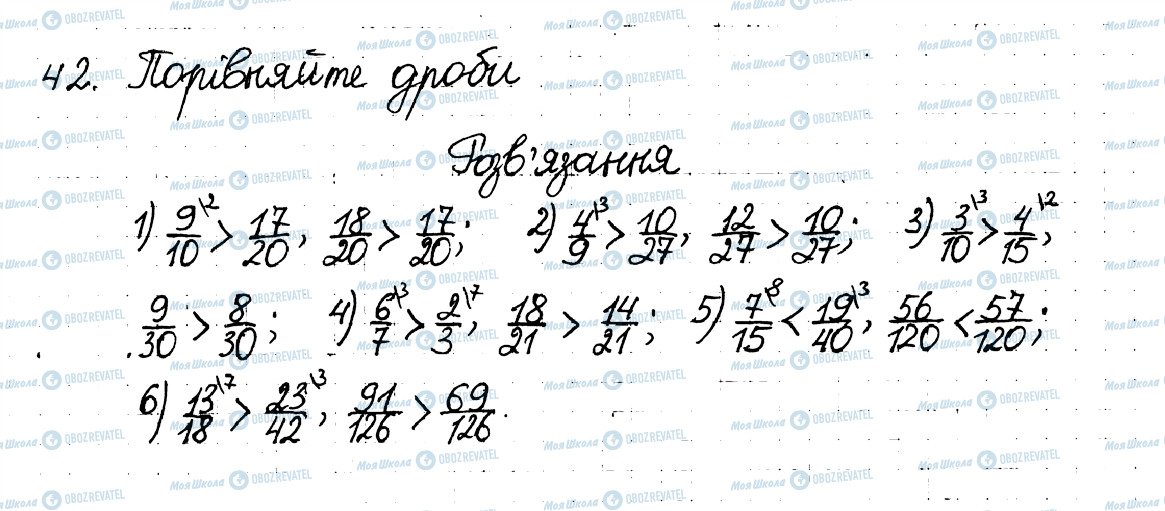 42. Порівняйте дроби
Розв'язання
1) 9/10\2 > 17/20, 18/20 > 17/20; 2) 4/9\3 > 10/27, 12/27 > 10/27; 3) 3/10\3 > 4/15\2;
9/30 > 8/30; 4) 6/7\3 > 2/3\7, 18/21 > 14/21; 5) 7/15\8 < 19/40\3, 56/120 < 57/120;
6) 13/18\7 > 23/42\3, 91/126 > 69/126.